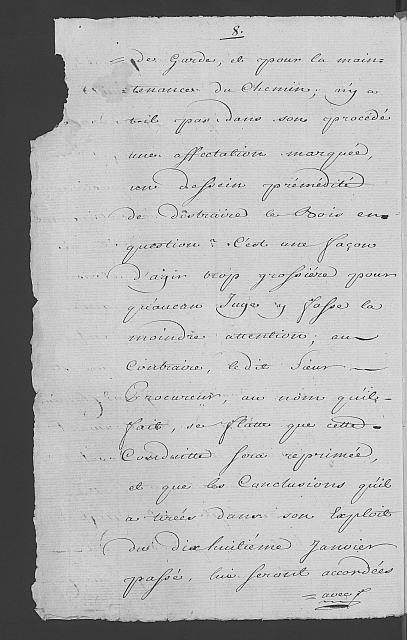 8.
= de Garde, et pour la main=
=tenance du Chemin; n'y a
t-il pas dans son procedé
une affectation marquée,
un dessein prémédité
de distraire le Bois en
question? C'est une façon
d'agir trop grossiére pour
qu'aucun Juge y fasse la
moindre attention; au
Contraire, ledit Sieur
Procureur, au nom qu'il
fait, se flatte que cette
Conduitte sera reprimée,
et que les Conclusions qu'il
a tirées dans son Exploit
du dixhuitiéme Janvier
passé, lui seront accordées
= avec